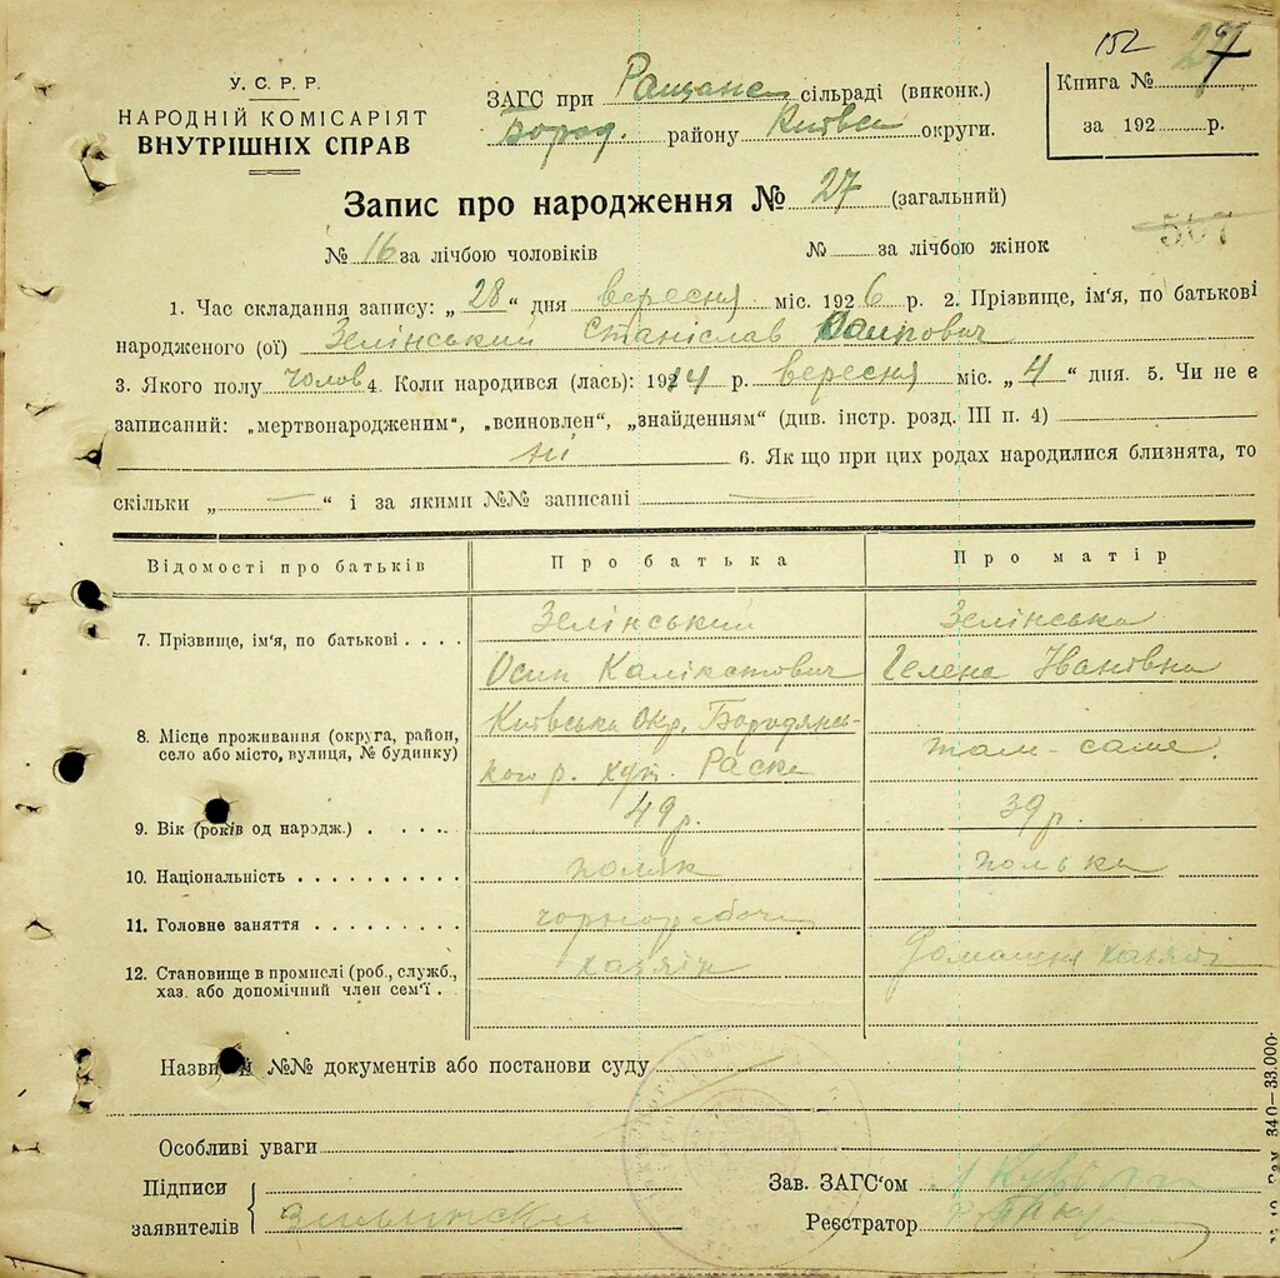 152 27
У. С. Р. Р.
НАРОДНІЙ КОМІСАРІЯТ
ВНУТРІШНІХ СПРАВ
ЗАГС при Ращанс сільраді (виконк.)
Бород. району Київськ округи.
Книга №
за 192 р.
Запис про народження № 27 (загальний)
507
№ 16 за лічбою чоловіків № за лічбою жінок
1. Час складання запису: „ 28 “ дня вересня міс. 1926 р. 2. Прізвище, ім‘я, по батькові
народженого (ої) Зелінський Станіслав Осипович
3. Якого полу чолов 4. Коли народився (лась): 1914 р. вересня міс. „ 4 “ дня. 5. Чи не є
записаний: „мертвонародженим“, „всиновлен“, „знайденням“ (див. інстр. розд. III п. 4)
ні 6. Як що при цих родах народилися близнята, то
скільки „ — “ і за якими №№ записані —
Відомості про батьків Про батька Про матір
7. Прізвище, ім‘я, по батькові . . . . Зелінський Зелінська
Осип Калікстович Гелена Івановна
8. Місце проживання (округа, район, село або місто, вулиця, № будинку) Київська Окр. Бородянсь-
кого р. хут. Раска там-саме
9. Вік (років од народж.) . . . . . 49 р. 39 р.
10. Національність . . . . . . . . . . поляк полька
11. Головне заняття . . . . . . . . . чорноробочий
12. Становище в промислі (роб., служб., хазяїн Домашня хазяйк
хаз. або допомічний член сем‘ї .
Назви й №№ документів або постанови суду
Особливі уваги
Підписи Зав. ЗАГС‘ом
заявителів Зилински Реєстратор
340—33.000.